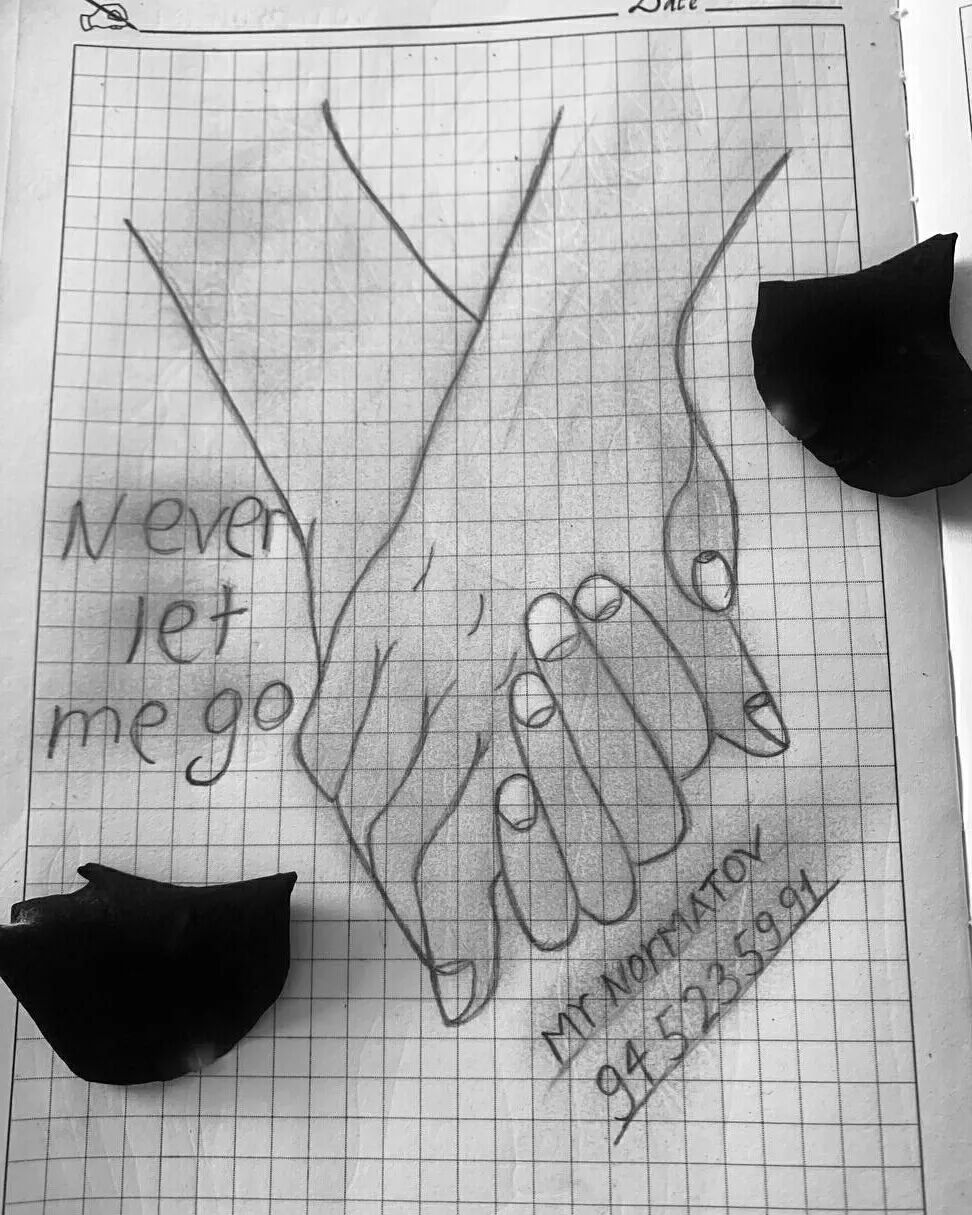 Date
Never
let
me go
Mr NOrMATOV
94 5235991